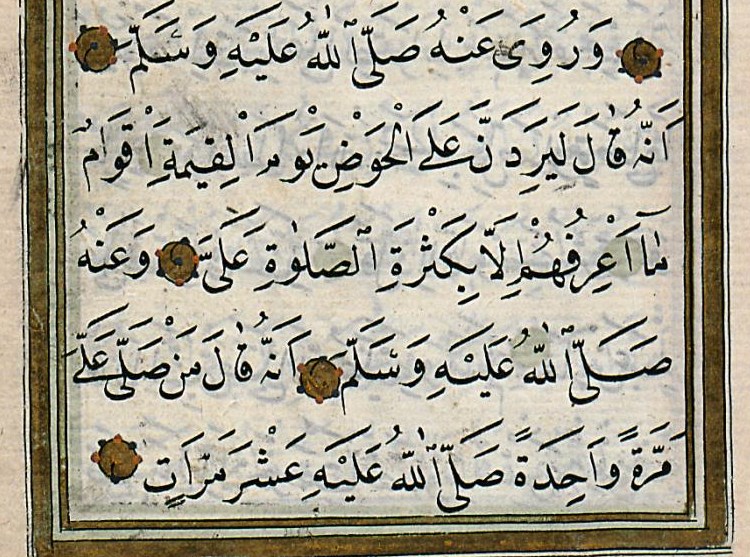 وَرُوِىَ عَنْهُ صَلَّى ٱللّٰهُ عَلَيْهِ وَسَلَّمَ
اَنَّهُ قَالَ لَيَرِدَنَّ عَلَى الْحَوْضِ يَوْمَ الْقِيٰمَةِ اَقْوَامٌ
مَا اَعْرِفُهُمْ اِلَّا بِكَثْرَةِ ٱلصَّلٰوةِ عَلَىَّ وَعَنْهُ
صَلَّى ٱللّٰهُ عَلَيْهِ وَسَلَّمَ اَنَّهُ قَالَ مَنْ صَلَّى عَلَىَّ
مَرَّةً وَاحِدَةً صَلَّى ٱللّٰهُ عَلَيْهِ عَشْرَ مَرَّاتٍ